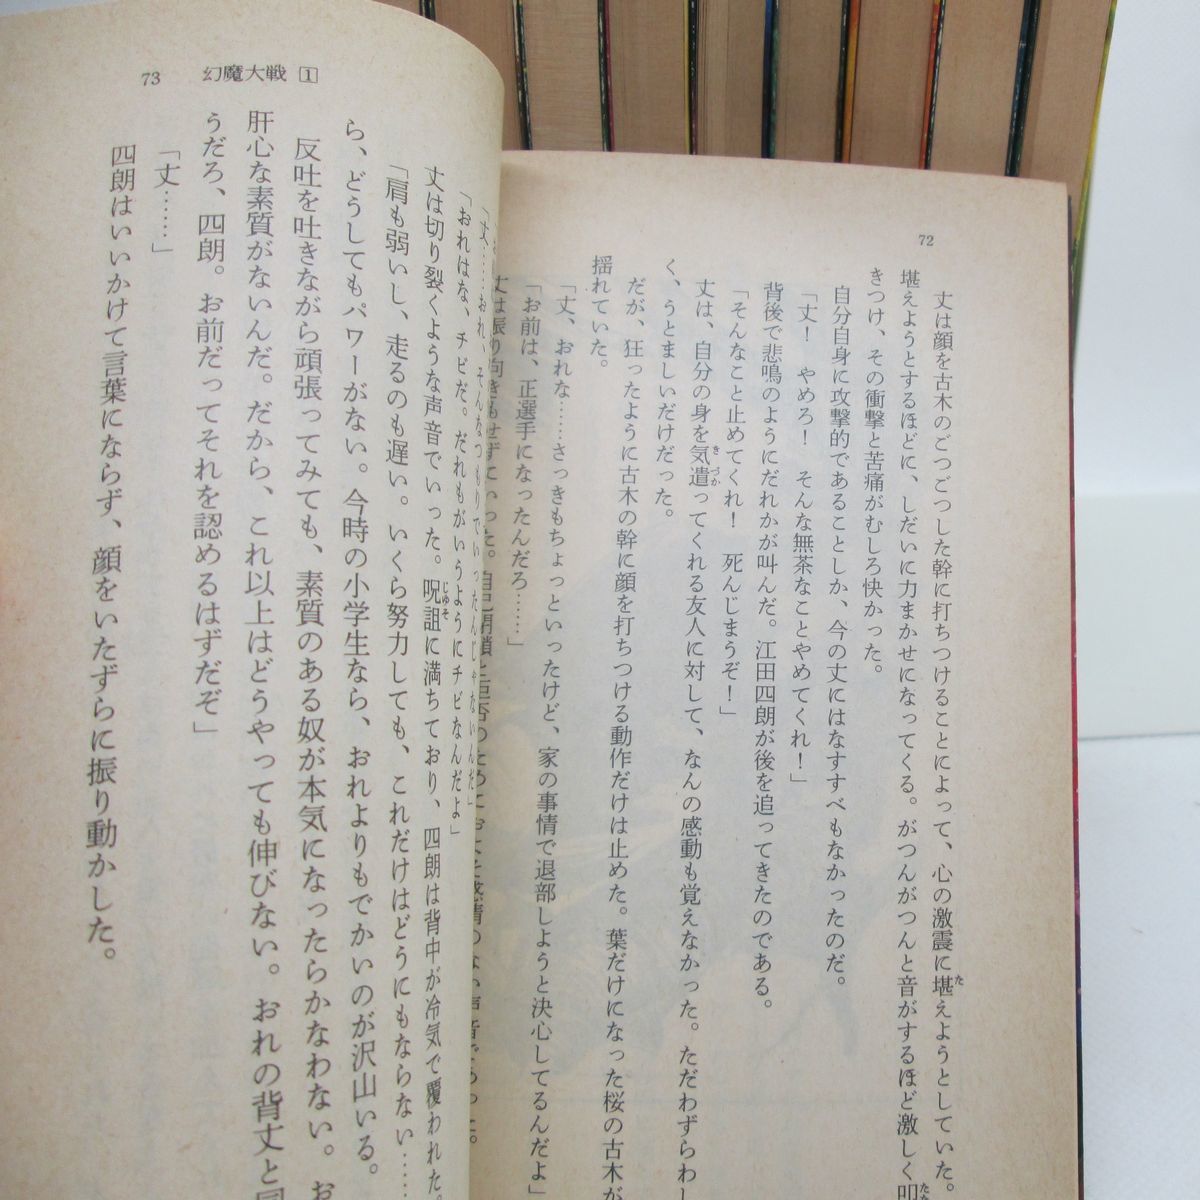 72
丈は顔を古木のごつごつした幹に打ちつけることによって、心の激震に堪えようとしていた。
堪えようとするほどに、しだいに力まかせになってくる。がつんがつんと音がするほど激しく叩
きつけ、その衝撃と苦痛がむしろ快かった。
自分自身に攻撃的であることしか、今の丈にはなすすべもなかったのだ。
「丈！　やめろ！　そんな無茶なことやめてくれ！」
背後で悲鳴のようにだれかが叫んだ。江田四朗が後を追ってきたのである。
「そんなこと止めてくれ！　死んじまうぞ！」
丈は、自分の身を気遣ってくれる友人に対して、なんの感動も覚えなかった。ただわずらわし
く、うとましいだけだった。
だが、狂ったように古木の幹に顔を打ちつける動作だけは止めた。葉だけになった桜の古木が
揺れていた。
「丈、おれな……さっきもちょっといったけど、家の事情で退部しようと決心してるんだよ」
「お前は、正選手になったんだろ……」
丈は振り向きもせずにいった。自己閉鎖と拒否のためにおよそ感情のない声音であった。
73　幻魔大戦 1
「丈……おれ、そんなつもりでいったんじゃないんだ」
「おれはな、チビだ。だれもがいうようにチビなんだよ」
丈は切り裂くような声音でいった。呪詛に満ちており、四朗は背中が冷気で覆われた。
「肩も弱いし、走るのも遅い。いくら努力しても、これだけはどうにもならない……
ら、どうしてもパワーがない。今時の小学生なら、おれよりもでかいのが沢山いる。
反吐を吐きながら頑張ってみても、素質のある奴が本気になったらかなわない。お
肝心な素質がないんだ。だから、これ以上はどうやっても伸びない。おれの背丈と同
うだろ、四朗。お前だってそれを認めるはずだぞ」
「丈……」
四朗はいいかけて言葉にならず、顔をいたずらに振り動かした。